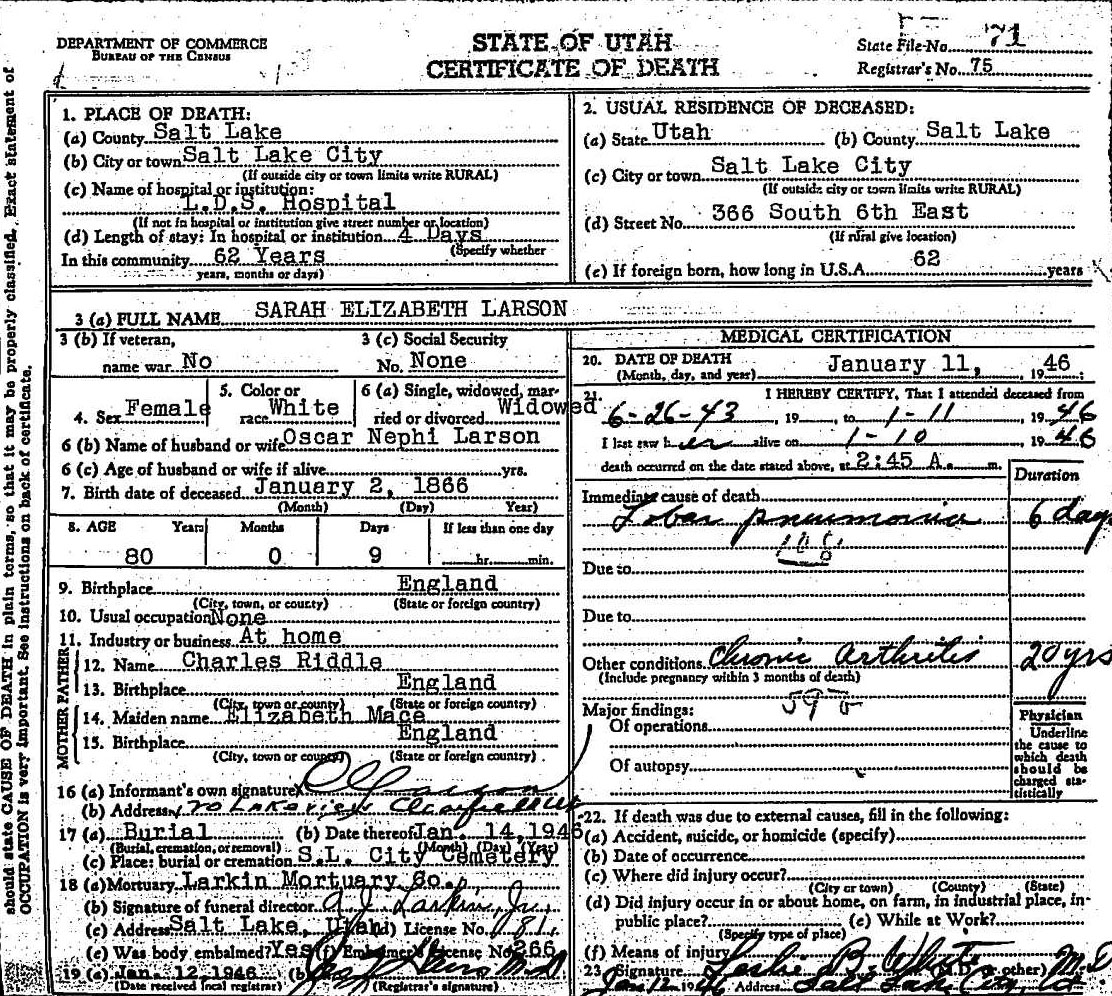 DEPARTMENT OF COMMERCE
BUREAU OF THE CENSUS
STATE OF UTAH
CERTIFICATE OF DEATH
State File No. 71
Registrar's No. 75
should state CAUSE OF DEATH in plain terms, so that it may be properly classified. Exact statement of
OCCUPATION is very important. See instructions on back of certificate.
1. PLACE OF DEATH:
(a) County Salt Lake
(b) City or town Salt Lake City
(If outside city or town limits write RURAL)
(c) Name of hospital or institution:
L.D.S. Hospital
(If not in hospital or institution give street number or location)
(d) Length of stay: In hospital or institution 4 Days
(Specify whether
In this community 62 Years
years, months or days)
2. USUAL RESIDENCE OF DECEASED:
(a) State Utah (b) County Salt Lake
(c) City or town Salt Lake City
(If outside city or town limits write RURAL)
(d) Street No. 366 South 6th East
(If rural give location)
(e) If foreign born, how long in U.S.A. 62 years
3 (a) FULL NAME SARAH ELIZABETH LARSON
3 (b) If veteran, name war No
3 (c) Social Security No. None
4. Sex Female
5. Color or race White
6 (a) Single, widowed, married or divorced Widowed
6 (b) Name of husband or wife Oscar Nephi Larson
6 (c) Age of husband or wife if alive yrs.
7. Birth date of deceased January 2, 1866
(Month) (Day) Year)
8. AGE Years Months Days If less than one day
80 0 9 hr. min.
9. Birthplace England
(City, town, or county) (State or foreign country)
10. Usual occupation None
11. Industry or business At home
FATHER
12. Name Charles Riddle
13. Birthplace England
(City, town or county) (State or foreign country)
MOTHER
14. Maiden name Elizabeth Mace
15. Birthplace England
(City, town or county) (State or foreign country)
16 (a) Informant's own signature
(b) Address
17 (a) Burial (b) Date thereof Jan. 14, 1946
(Burial, cremation, or removal) (Month) (Day) (Year)
(c) Place: burial or cremation S.L. City Cemetery
18 (a) Mortuary Larkin Mortuary Co.,
(b) Signature of funeral director A. J. Larkin, Jr.,
(c) Address Salt Lake, Utah (d) License No. 81,
(e) Was body embalmed? Yes (f) Embalmer's License No. 266
19 (a) Jan. 12, 1946 (b) M.D.
(Date received local registrar) (Registrar's signature)
MEDICAL CERTIFICATION
20. DATE OF DEATH January 11, 1946;
(Month, day, and year)
21. I HEREBY CERTIFY, That I attended deceased from
6-26-43, 19 , to 1-11, 1946
I last saw her alive on 1-10, 1946
death occurred on the date stated above, at 2:45 A. m.
Duration
Immediate cause of death
Lobar pneumonia 6 days
108
Due to
Due to
Other conditions Chronic arthritis 20 yrs
(Include pregnancy within 3 months of death)
Major findings: 59
Of operations
Of autopsy
Physician
Underline
the cause to
which death
should be
charged sta-
tistically
22. If death was due to external causes, fill in the following:
(a) Accident, suicide, or homicide (specify)
(b) Date of occurrence
(c) Where did injury occur?
(City or town) (County) (State)
(d) Did injury occur in or about home, on farm, in industrial place, in-
public place? (e) While at Work?
(Specify type of place)
(f) Means of injury
23. Signature Leslie B. White (M.D. or other) M.D.
Jan 12 1946 Address Salt Lake City, Ut